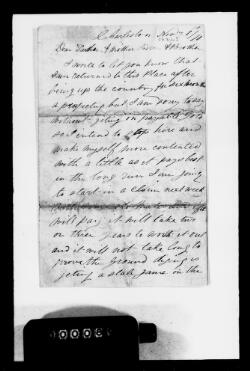 Charleston Nov
Dear Father & Mother Sister & Brother
I write to let you know that
I am returned to this Place after
being up the country for six months
a prospecting but I am sorry to say
without geting on payable gold
so I intend to stop here and
make myself more contented
with a little as it pays best
in the long run I am going
to start in a claim next week
will pay it will take two
or three years to work it out
and it will not take long to
prove the ground diging is
geting a stale game on the
0000